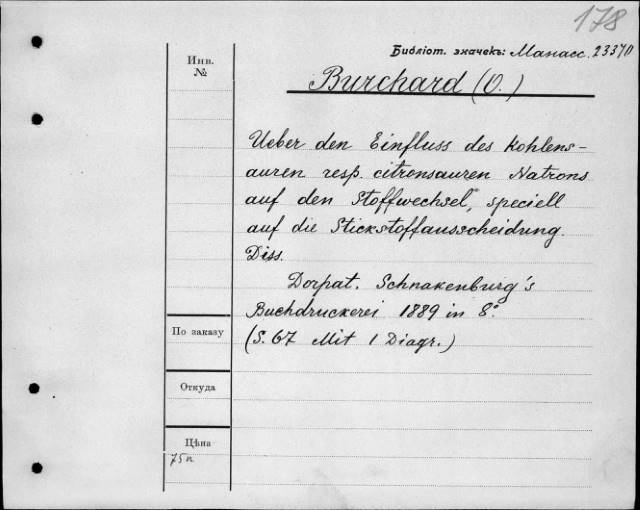 178
Библіот. значекъ: Манасс. 23370
Инв.
№
Burchard (O.)
Ueber den Einfluss des kohlens-
auren resp. citronsauren Natrons
auf den Stoffwechsel, speciell
auf die Stickstoffausscheidung.
Diss.
Dorpat. Schnakenburg's
Buchdruckerei 1889 in 8°.
(S. 67 Mit 1 Diagr.)
По заказу
Откуда
Цѣна
75 к.